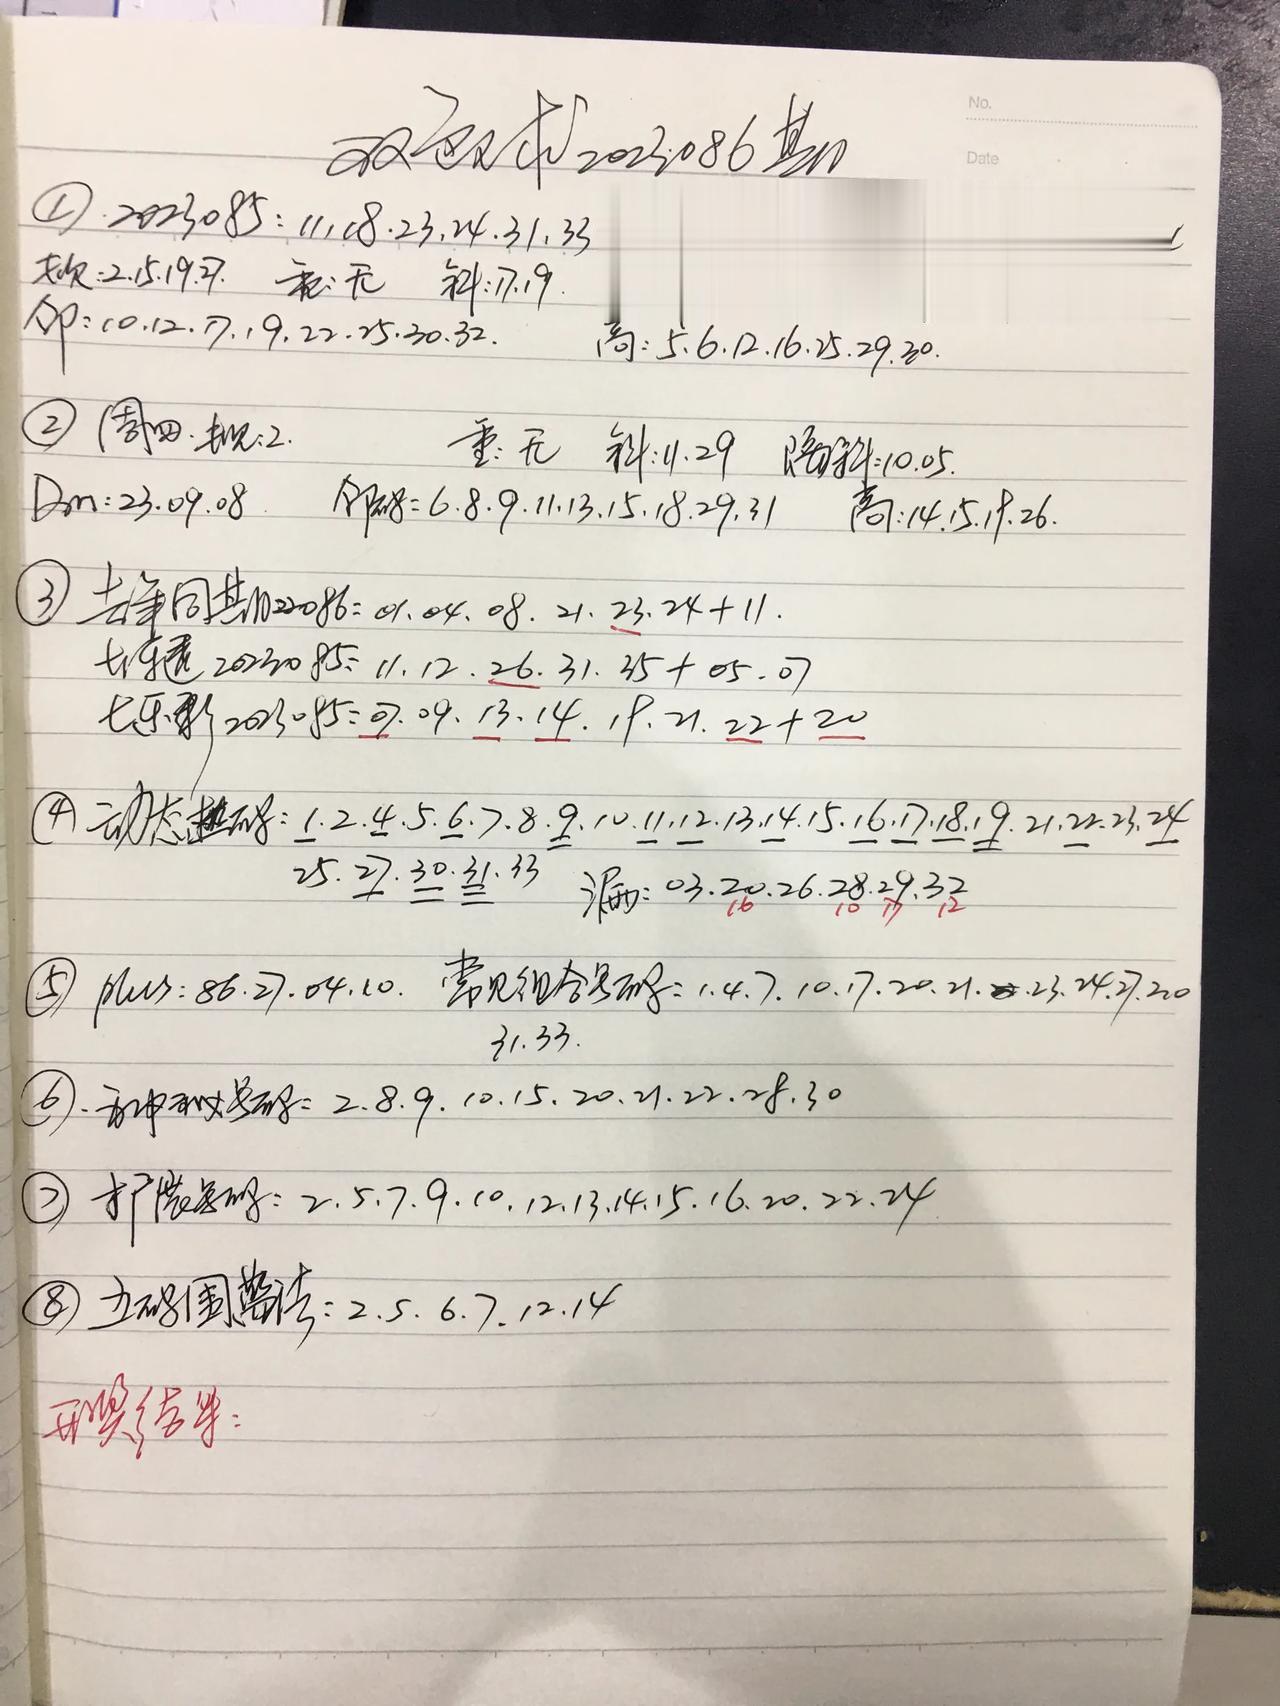 No.
Date
双色球2023086期
① 2023085: 11.18.23.24.31.33
规:2.15.19.27. 重:无 斜:17.19.
邻:10.12.17.19.22.25.30.32. 高:5.6.12.16.25.29.30.
② 周四.规:2. 重:无 斜:11.29 隔斜:10.05.
Dm:23.09.08 邻码:6.8.9.11.13.15.18.29.31 高:14.15.19.26.
③ 去年同期22086: 01.04.08.21.23.24+11.
2023085: 11.12.26.31.35+05.07
七乐彩2023085: 07.09.13.14.19.21.22+20
④ 动态热码:1.2.4.5.6.7.8.9.10.11.12.13.14.15.16.17.18.19.21.22.23.24
25.27.30.31.33 03.20.26.28.29.32
16 10 17 12
⑤ plus:86.27.04.10. 常见组合号码:1.4.7.10.17.20.21.23.24.27.30
31.33.
⑥ 号码:2.8.9.10.15.20.21.22.28.30
⑦ 扩散号码:2.5.7.9.10.12.13.14.15.16.20.22.24
⑧ 五码围蓝法:2.5.6.7.12.14
开奖结果: